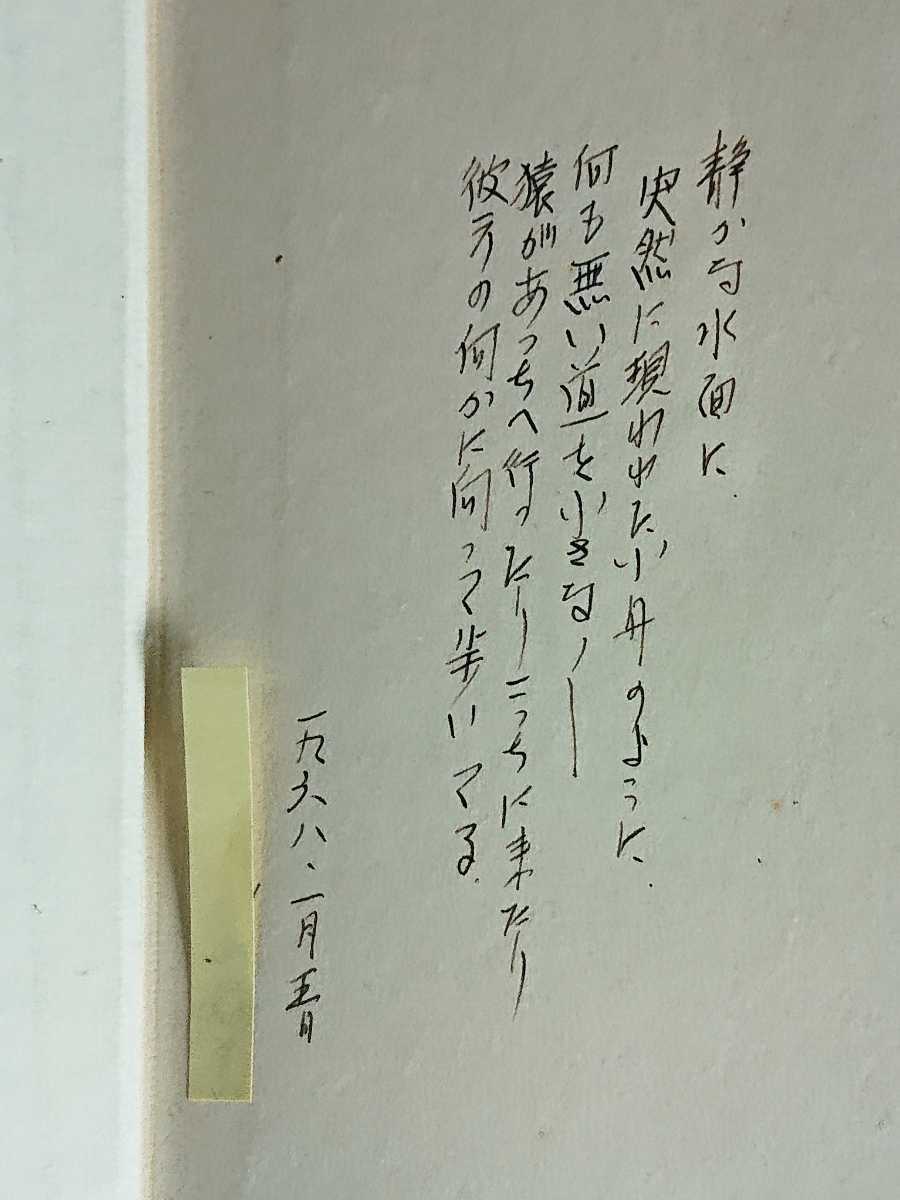 静かな水面に
突然に現われた小舟のように
何も無い道を小さなノ―
猿があっちへ行ったりこっちに来たり
彼方の何かに向って歩いてる
一九六八、一月青